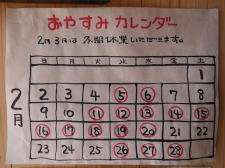 おやすみカレンダー
2月3月は冬期休業いただきます。
日 月 火 水 木 金 土
1
2 3 4 5 6 7 8
9 10 11 12 13 14 15
16 17 18 19 20 21 22
23 24 25 26 27 28
2月